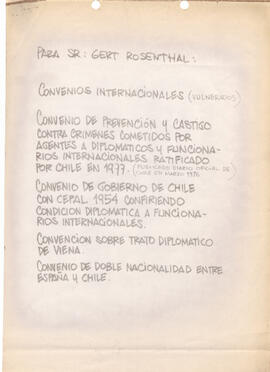 PARA SR: GERT ROSENTHAL:
CONVENIOS INTERNACIONALES (VULNERADOS)
CONVENIO DE PREVENCIÓN Y CASTIGO
CONTRA CRIMENES COMETIDOS POR
AGENTES A DIPLOMATICOS Y FUNCIONA-
RIOS INTERNACIONALES RATIFICADO
POR CHILE EN 1977. (PUBLICADO DIARIO OFICIAL DE
CHILE EN MARZO 1976
CONVENIO DE GOBIERNO DE CHILE
CON CEPAL 1954 CONFIRIENDO
CONDICION DIPLOMATICA A FUNCIONA-
RIOS INTERNACIONALES.
CONVENCION SOBRE TRATO DIPLOMATICO
DE VIENA.
CONVENIO DE DOBLE NACIONALIDAD ENTRE
ESPAÑA Y CHILE.